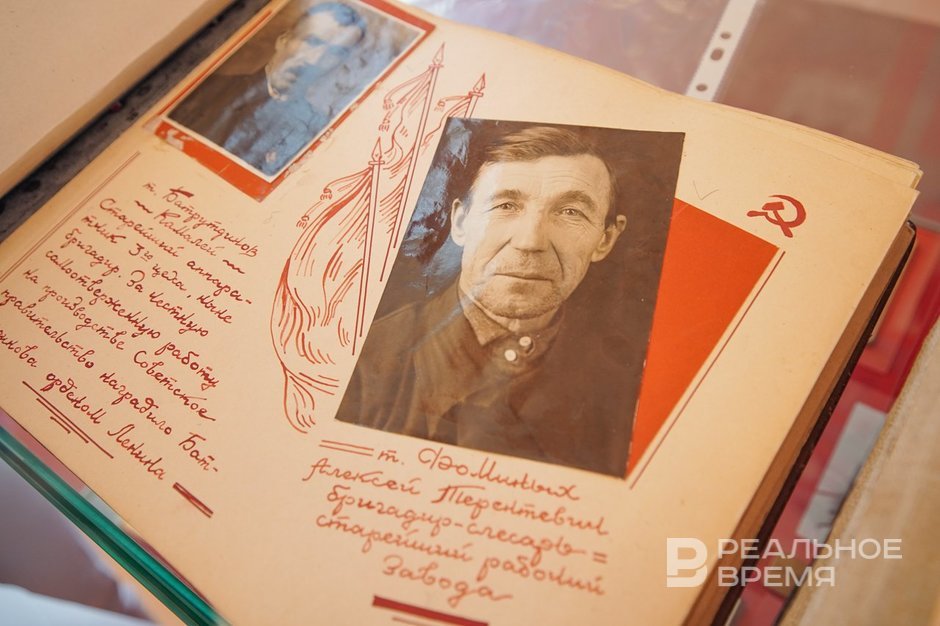 т. Батрутдинов
— Камалей —
Старейший аппара-
тчик 3го цеха, ныне
бригадир. За честную
самоотверженную работу
на производстве Советское
правительство наградило Бат-
инова орденом Ленина
т. Фоминых
Алексей Терентевич
бригадир-слесарь =
старейший рабочий
Завода
РЕАЛЬНОЕ
ВРЕМЯ